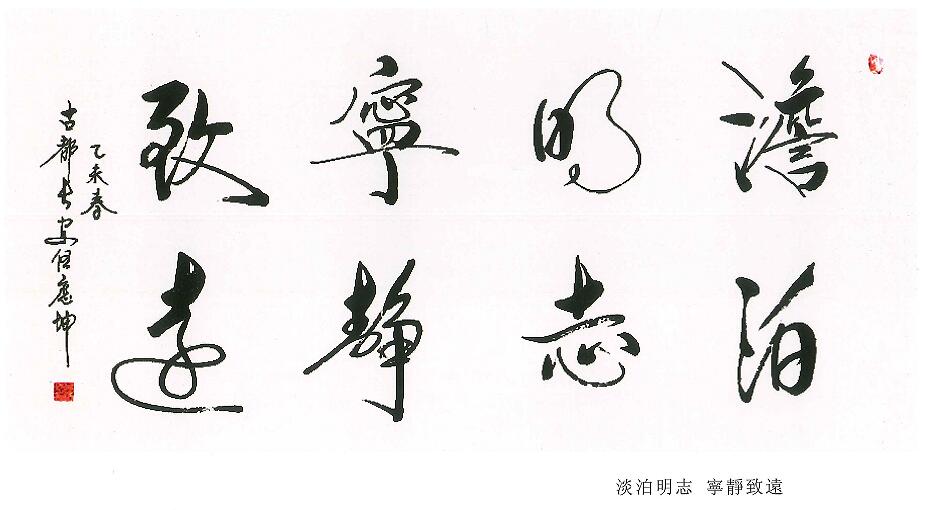 澹泊
明志
寧靜
致遠
乙未春
古都长安任應坤
淡泊明志 寧靜致遠